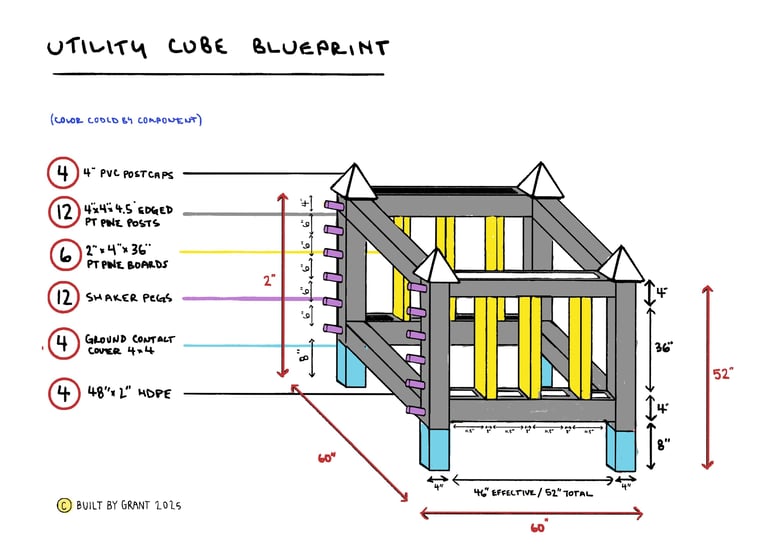 UTILITY CUBE BLUEPRINT
(COLOR CODED BY COMPONENT)
4 4" PVC POSTCAPS
12 4"x4"x4.5' EDGED
PT PINE POSTS
6 2" x 4" x 36"
PT PINE BOARDS
12 SHAKER PEGS
4 GROUND CONTACT
COVER 4x4
4 48" x 2" HDPE
© BUILT BY GRANT 2025
2"
4"
6"
6"
6"
6"
6"
8"
60"
4"
36"
4"
8"
52"
4"
46" EFFECTIVE / 52" TOTAL
4"
60"